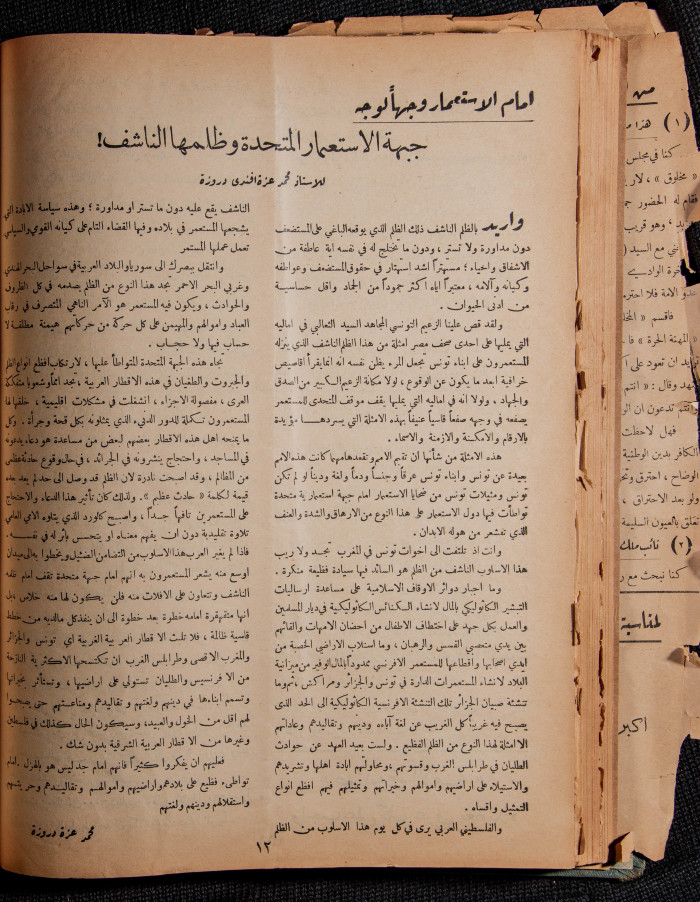 امام الاستعمار وجهاً لوجه
جبهة الاستعمار المتحدة وظلمها الناشف!
للاستاذ محمد عزة افندي دروزة
واريد بالظلم الناشف ذلك الظلم الذي يوقعه الباغي على المستضعف
دون مداورة ولا تستر، ودون ما تختلج له في نفسه اية عاطفة من
الاشفاق واحياء؛ مستهتراً اشد استهتار في حقوق المستضعف وعواطفه
وكيانه وآلامه، معتبراً اياه اكثر جموداً من الجماد واقل حساسية
من ادنى الحيوان.
ولقد قص علينا الزعيم التونسي المجاهد السيد الثعالبي في اماليه
التي يمليها على احدى صحف مصر امثلة من هذا الظلم الناشف الذي ينزله
المستعمرون على ابناء تونس تجعل المرء يظن نفسه انه انما يقرأ اقاصيص
خرافية ابعد ما يكون عن الوقوع، لولا مكانة الزعيم الكبير من الصدق
والجهاد، ولولا انه في اماليه التي يمليها يقف موقف المتحدي للمستعمر
يصفعه في وجهه صفعاً قاسياً عنيفاً بهذه الامثلة التي يسردها مؤيدة
بالارقام والامكنة والازمنة والاسماء.
هذه الامثلة من شأنها ان تقيم الامم وتقعدها مهما كانت هذه الامم
بعيدة عن تونس وابناء تونس عرقاً وجنساً ودماً ولغة وديناً او لم تكن
تونس ومثيلات تونس من ضحايا الاستعمار امام جبهة استعمارية متحدة
تواطأت فيها دول الاستعمار على هذا النوع من الارهاق والشدة والعنف
الذي تقشعر من هوله الابدان.
وانت اذ تلتفت الى اخوات تونس في المغرب تجد ولا ريب
هذا الاسلوب الناشف من الظلم هو السائد فيها سيادة فظيعة منكرة.
وما اجبار دوائر الاوقاف الاسلامية على مساعدة ارساليات
التبشير الكاثوليكي بالمال لانشاء الكنائس الكاثوليكية في ديار المسلمين
والعمل بكل جهد على اختطاف الاطفال من احضان الامهات والقائهم
بين يدي متعصبي القسس والرهبان، وما استلاب الاراضي الخصبة من
ايدي اصحابها واقطاعها للمستعمر الافرنسي ممدوداً بالمال الوفير من ميزانية
البلاد لانشاء المستعمرات الدارة في تونس والجزائر ومراكش، ثم وما
تنشئة صبيان الجزائر تلك التنشئة الافرنسية الكاثوليكية الى الحد الذي
يصبح فيه غريباً كل الغريب عن لغة آباءه ودينهم وتقاليدهم وعاداتهم
الا امثلة لهذا النوع من الظلم الفظيع. ولست بعيد العهد عن حوادث
الطليان في طرابلس الغرب وقسوتهم، ومحاولتهم ابادة اهلها وتشريدهم
والاستيلاء على اراضيهم واموالهم وخيراتهم وتمثيلهم فيهم افظع انواع
التمثيل واقساه.
والفلسطيني العربي يرى في كل يوم هذا الاسلوب من الظلم
الناشف يقع عليه دون ما تستر او مداورة؛ وهذه سياسة الابادة التي
يشجعها المستعمر في بلاده وفيها القضاء التام على كيانه القومي والسياسي
تعمل عملها المستمر
وانتقل ببصرك الى سوريا والبلاد العربية في سواحل البحر الهندي
وغربي البحر الاحمر تجد هذا النوع من الظلم يصدمه في كل الظروف
والحوادث، ويكون فيه المستعمر هو الآمر الناهي المتصرف في رقاب
العباد واموالهم والمهيمن على كل حركة من حركاتهم هيمنة مطلقة لا
حساب فيها ولا حجاب.
تجاه هذه الجبهة المتحدة المتواطأ عليها، لارتكاب افظع انواع الظلم
والجبروت والطغيان في هذه الاقطار العربية، نجد امماً وشعوبا متفككة
العرى، مفصولة الاجزاء، انشغلت في مشكلات اقليمية، خلقها لها
المستعمرون تكملة للدور الدنيء الذي يمثلونه بكل قحة وجرأة. وكل
ما يمنحه اهل هذه الاقطار بعضهم لبعض من مساعدة هو دعاء يدعونه
في المساجد، واحتجاج ينشرونه في الجرائد، في حال وقوع حادثة عظمى
من المظالم، وقد اصبحت نادرة لان الظلم قد وصل الى حد لم يعد معه
قيمة لكلمة «حادث عظيم». ولذلك كان تأثير هذا الدعاء والاحتجاج
على المستعمرين تافهاً جداً، واصبح كالورد الذي يتلوه الامي العامي
تلاوة تقليدية دون ان يفهم معناه او يتحسس باثر له في نفسه.
فاذا لم يغير العرب هذا الاسلوب من التضامن الضئيل ويتخطوا به الى ميدان
اوسع منه يشعر المستعمرون به انهم امام جبهة متحدة تقف امام ظلمه
الناشف وتعاون على الافلات منه فلن يكون لها منه خلاص بل
انها متقهقرة امامه خطوة بعد خطوة الى ان ينفذ كل ما لديه من خطط
قاسية ظالمة، فلا تلبث الاقطار العربية الغربية اي تونس والجزائر
والمغرب الاقصى وطرابلس الغرب ان تكتسحها الاكثرية النازحة
من الافرنسيس والطليان تستولي على اراضيها، وتستأثر بخيراتها
وتسمم ابناءها في دينهم ولغتهم وتقاليدهم ومتاعستهم حتى يصبحوا
لهم اقل من الخول والعبيد، وسيكون الحال كذلك في فلسطين
وغيرها من الاقطار العربية الشرقية بدون شك.
فعليهم ان يفكروا كثيراً فانهم امام جد ليس هو بالهزل. امام
تواطىء فظيع على بلادهم واراضيهم واموالهم وتقاليدهم وحريتهم
واستقلالهم ودينهم ولغتهم
محمد عزة دروزة
١٢
من
(١) هذا
كنا في مجلس
«مخلوق»، لا
فقام له الحضور
وهو قريب
مع السيد
الامة فلا
فاقسم
«المهنة الحرة»
ان تعود على
وقال: «انتم
تدعون ان
فهل لاحظت
الكافر بدين الوطنية
الوضاح، احترق
ولو بعد الاحتراق،
تعلق بالعيون السليمة
(٢) نائب ملك
كنا نبحث مع
لمناسبة
اكبر